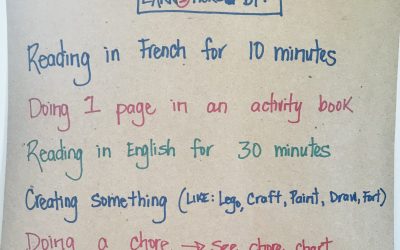 Reading in French for 10 minutes
Doing 1 page in an activity book
Reading in English for 30 minutes
Creating something (LIKE: Lego, Craft, Paint, Draw, Fort)
Doing a chore → see chore chart